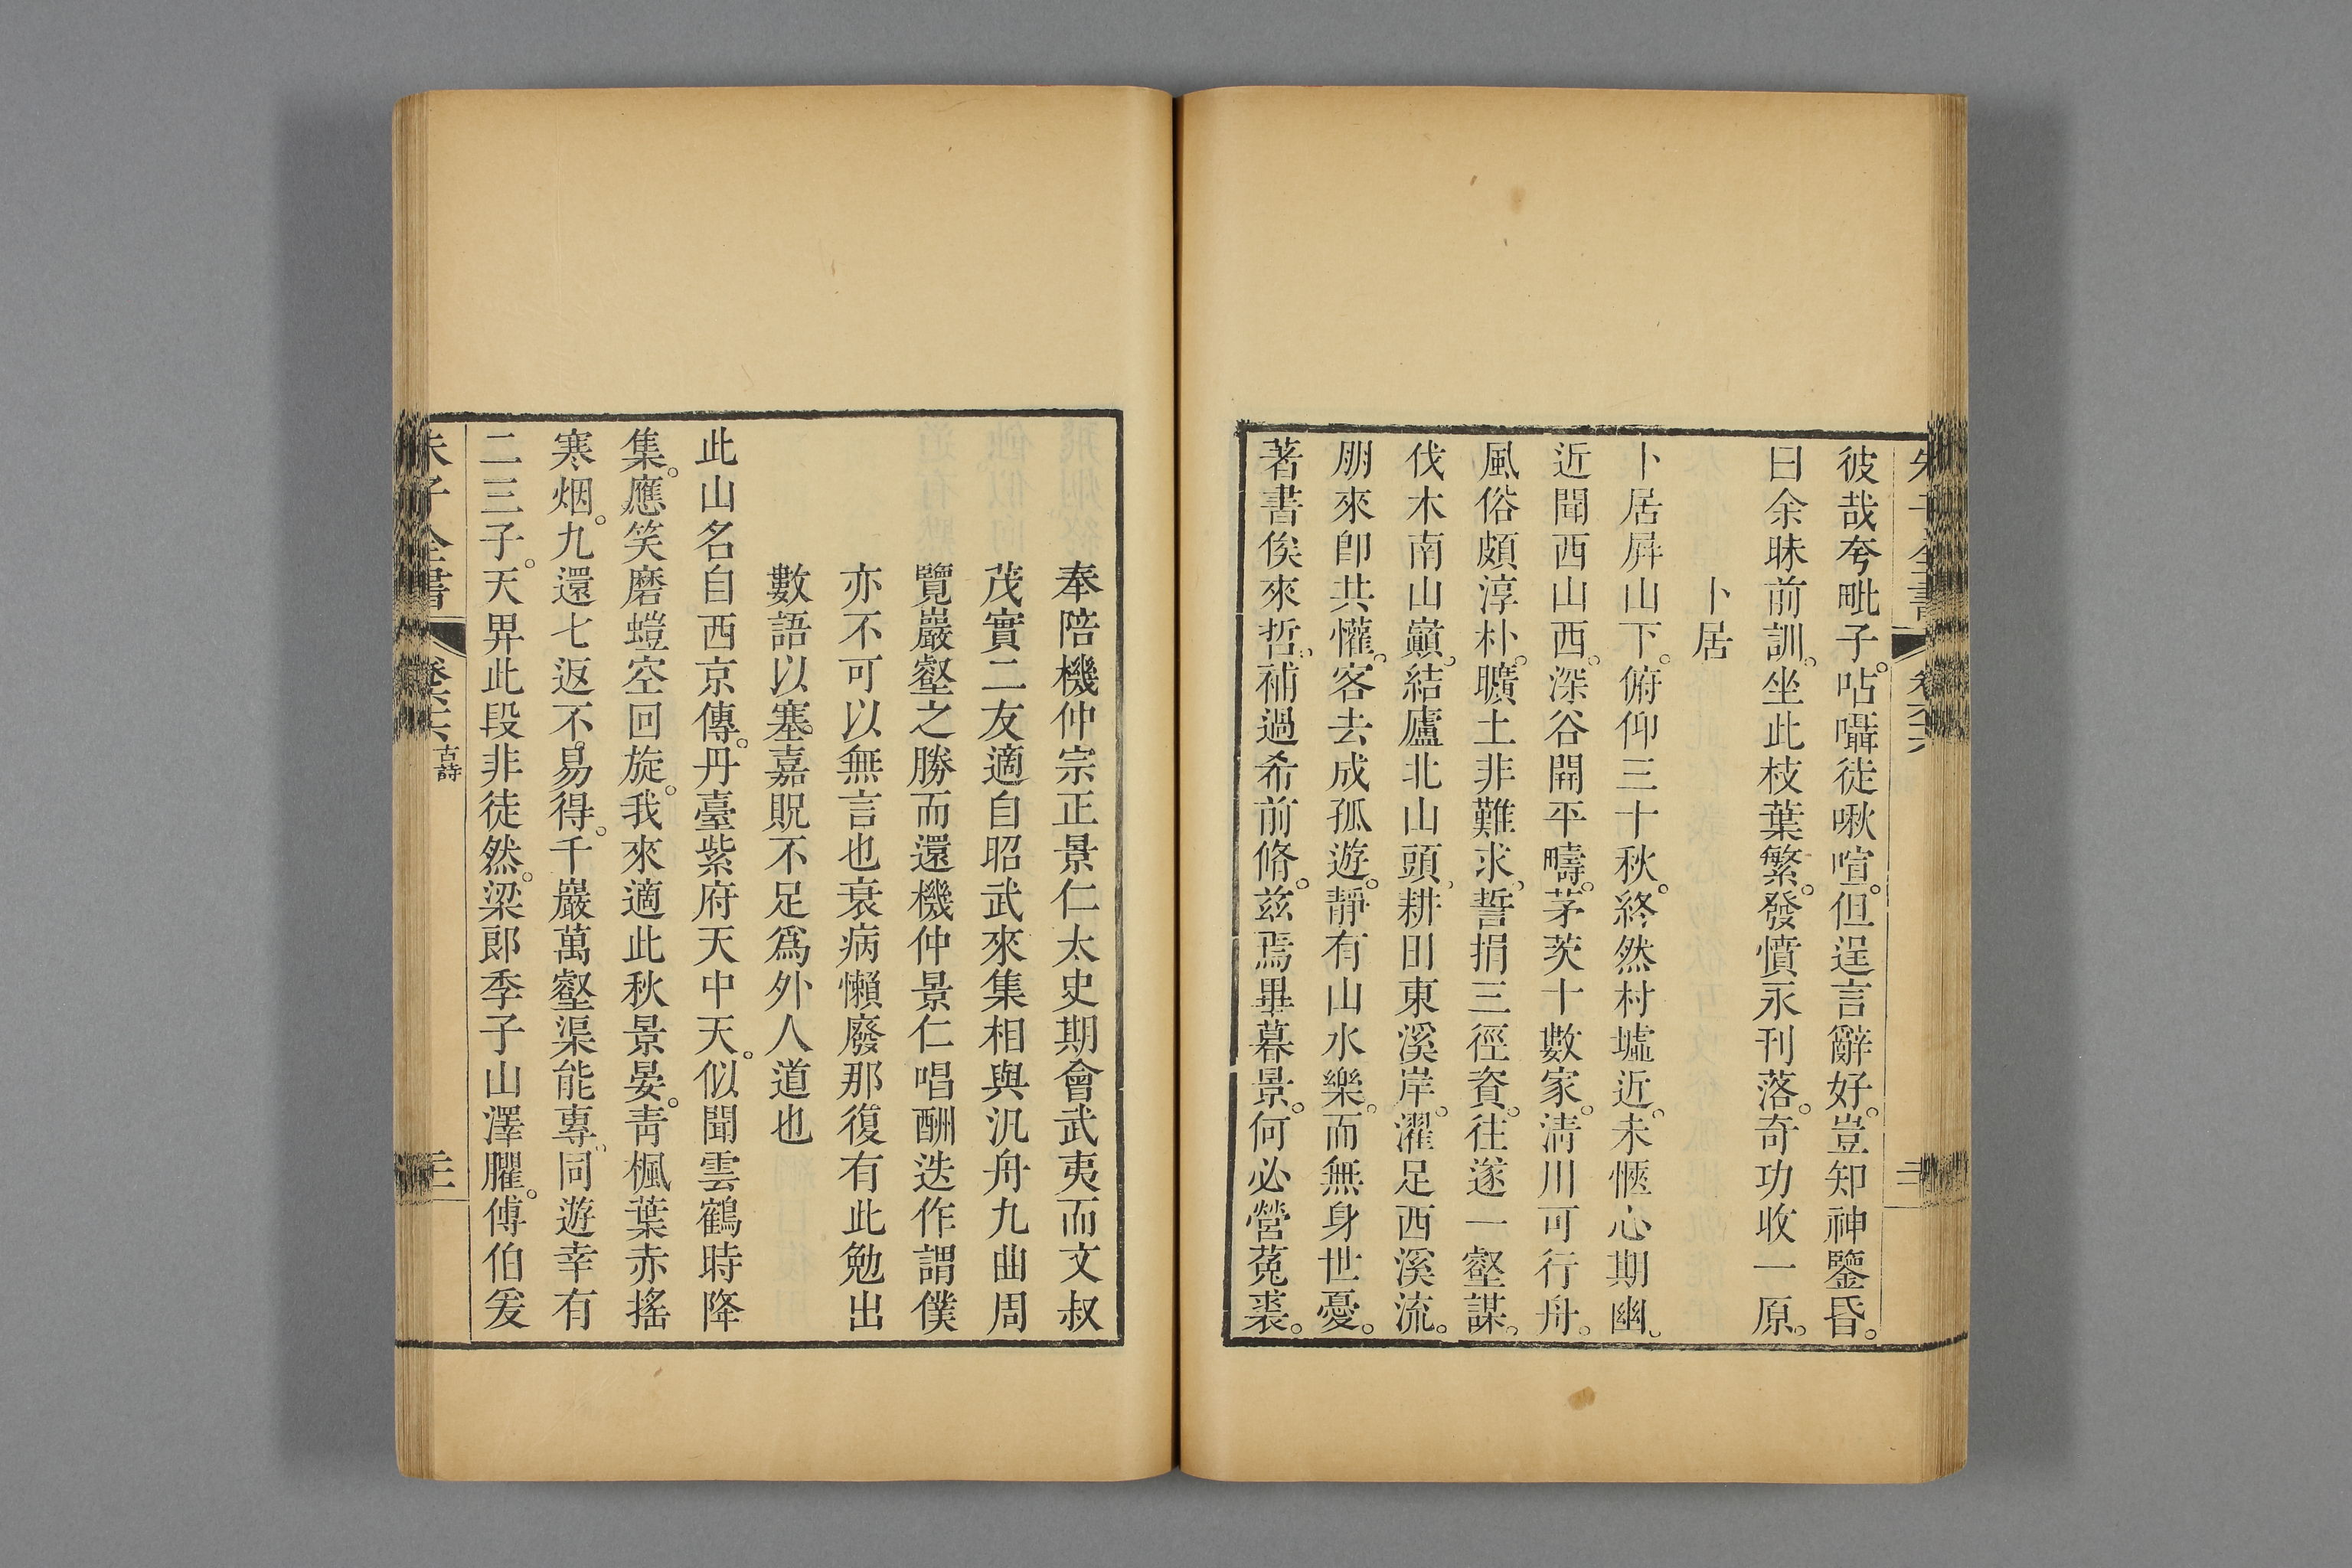 朱子全書 卷六六 二
彼哉夸毗子。呫囁徒啾喧。但逞言辭好。豈知神鑒昏。
曰余昧前訓。坐此枝葉繁。發憤永刊落。奇功收一原。
卜居
卜居屛山下。俯仰三十秋。終然村墟近。未愜心期幽。
近聞西山西。深谷開平疇。茅茨十數家。淸川可行舟。
風俗頗淳朴。曠土非難求。誓捐三徑資。往遂一壑謀。
伐木南山巓。結廬北山頭。耕田東溪岸。濯足西溪流。
朋來卽共懽。客去成孤遊。靜有山水樂。而無身世憂。
著書俟來哲。補過希前脩。茲焉畢暮景。何必營菟裘。
奉陪機仲宗正景仁太史期會武夷而文叔
茂實二友適自昭武來集相與汎舟九曲周
覽巖壑之勝而還機仲景仁唱酬迭作謂僕
亦不可以無言也衰病懶廢那復有此勉出
數語以塞嘉貺不足爲外人道也
此山名自西京傳。丹臺紫府天中天。似聞雲鶴時降
集。應笑磨螘空回旋。我來適此秋景晏。靑楓葉赤搖
寒烟。九還七返不易得。千巖萬壑渠能專。同遊幸有
二三子。天畀此段非徒然。梁郎季子山澤臞。傅伯爰
朱子全書 卷六六 古詩 二